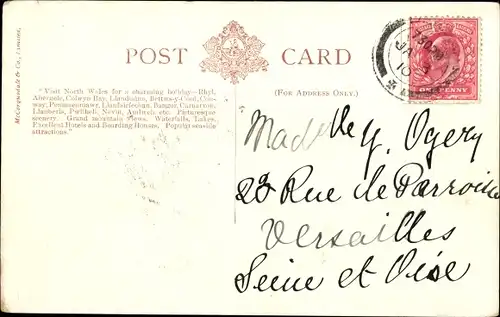 McCorquodale & Co., Limited.
POST CARD
"Visit North Wales for a charming holiday—Rhyl,
Abergele, Colwyn Bay, Llandudno, Bettws-y-Coed, Con-
way, Penmaenmawr, Llanfairfechan, Bangor, Carnarvon,
Llanberis, Pwllheli, Nevin, Amlwch etc. Picturesque
scenery. Grand mountain views. Waterfalls, Lakes,
Excellent Hotels and Boarding Houses. Popular seaside
attractions."
(FOR ADDRESS ONLY.)
ONE PENNY
Madelle Y. Ogery
23 Rue de Parroisse
Versailles
Seine et Oise